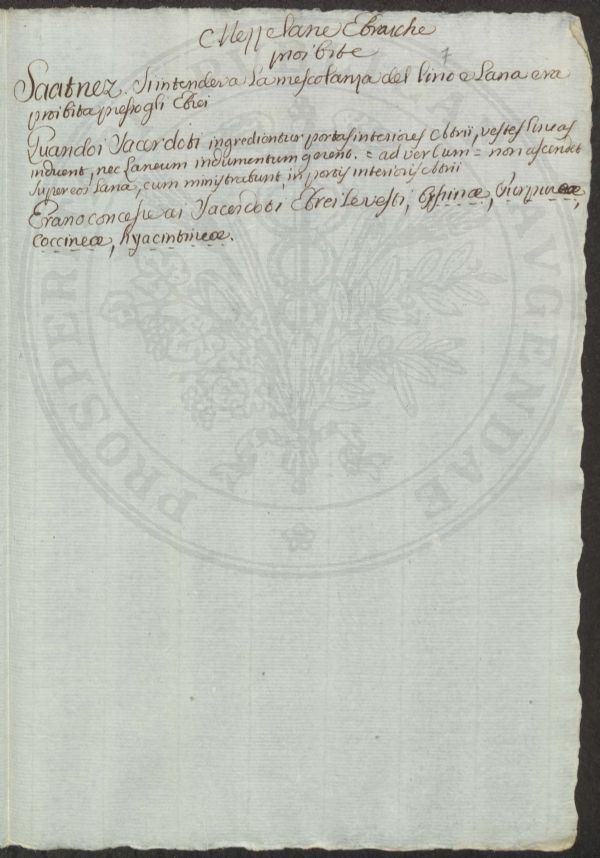 Mezze Lane Ebraiche
proibite
7
Saatnez. S'intendeva La mescolanza del lino e Lana era
proibita presso gli Ebrei
Quando i Sacerdoti ingredientur portas interiores Atrii, vestes lineas
induent, nec Laneum indumentum gerent. = ad verbum = non ascendet
super eos Lana, cum ministrabunt, in portis interioris Atrii
Erano concesse ai Sacerdoti Ebrei le vesti, Byssinæ, Purpureæ,
Coccineæ, hyacinthineæ.
PROSPER AVGENDAE